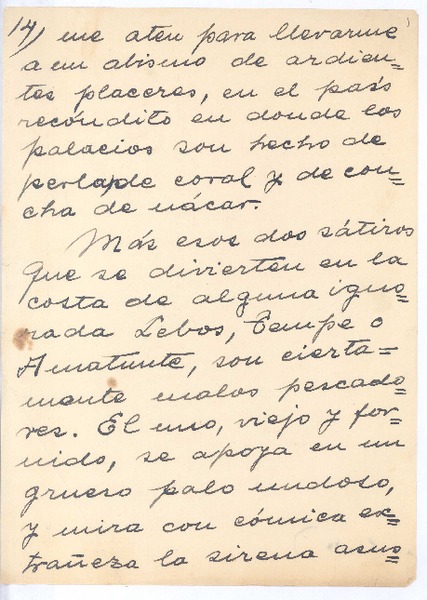 14) me aten para llevarme
a un abismo de ardien=
tes placeres, en el país
recóndito en donde los
palacios son hecho de
perla, de coral y de con=
cha de nácar.
Más esos dos sátiros
que se divierten en la
costa de alguna igno=
rada Lebos, Tempe o
Amatunte, son cierta=
mente malos pescado=
res. El uno, viejo y for=
nido, se apoya en un
grueso palo undoso,
y mira con cómica ex=
trañeza la sirena asus=